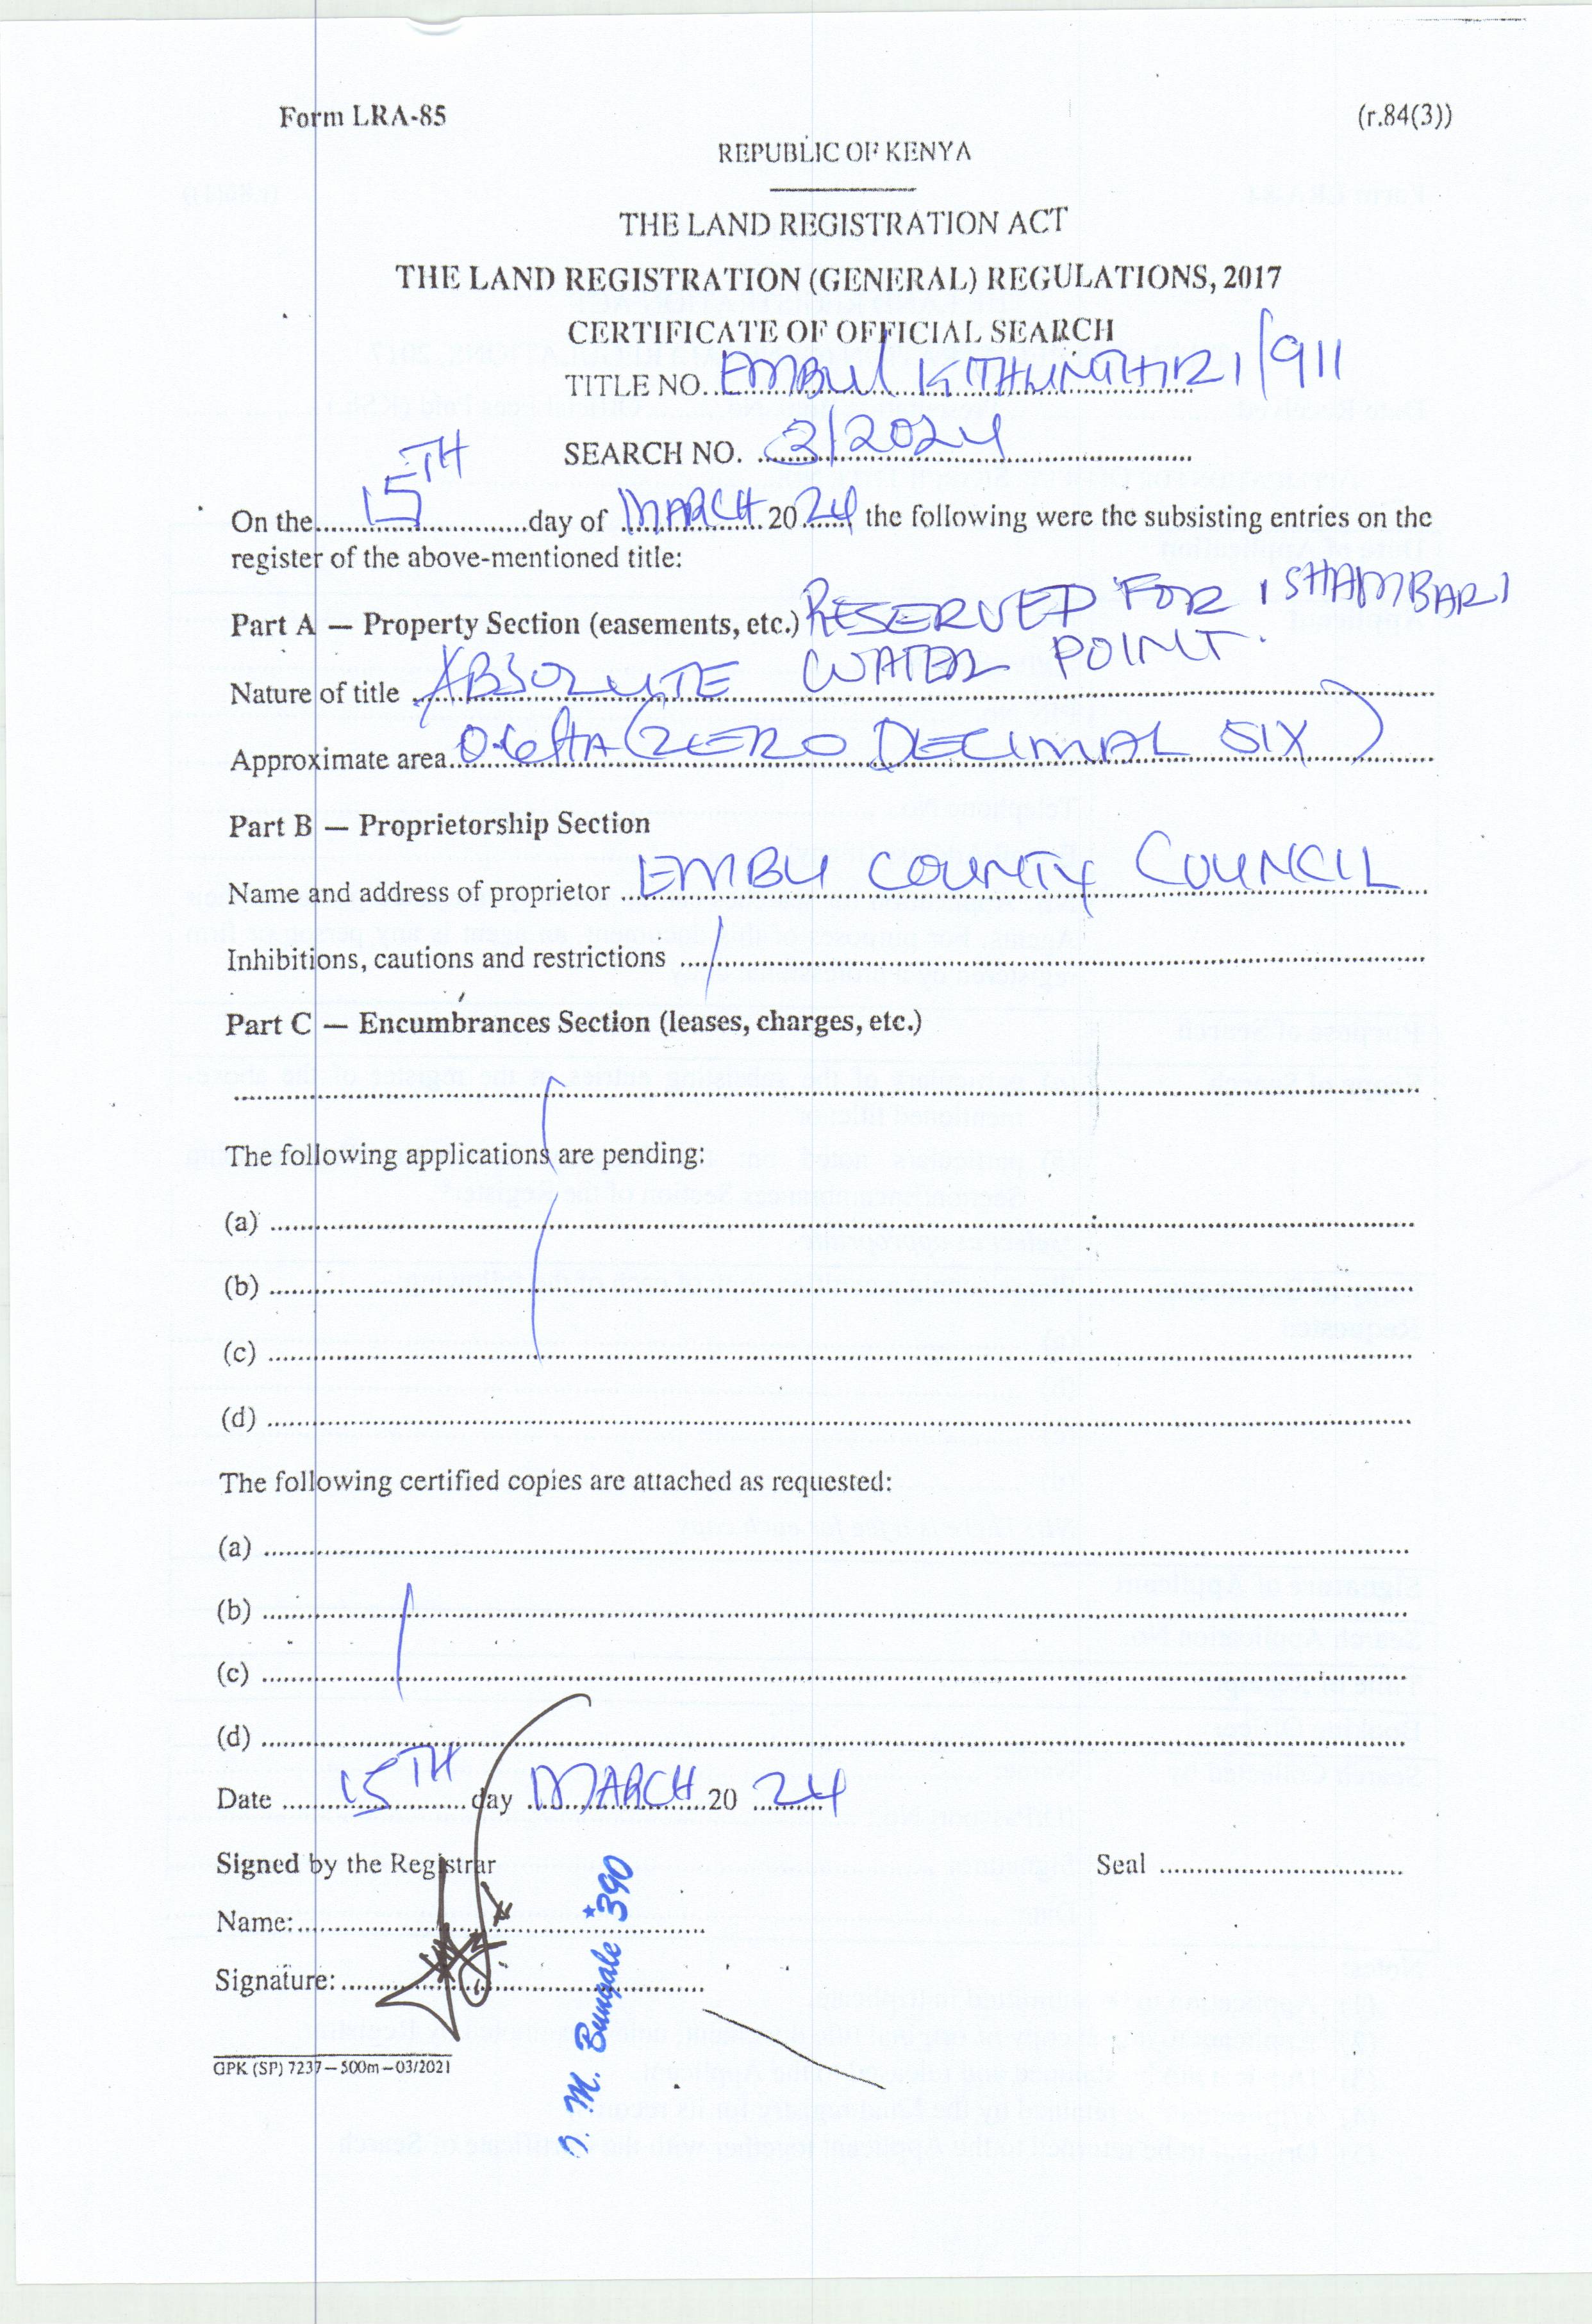 Form LRA-85 (r.84(3))
REPUBLIC OF KENYA
THE LAND REGISTRATION ACT
THE LAND REGISTRATION (GENERAL) REGULATIONS, 2017
CERTIFICATE OF OFFICIAL SEARCH
TITLE NO. EMBU/KITHUNTHIRI/911
SEARCH NO. 3/2024
On the 15TH day of MARCH 2024 the following were the subsisting entries on the
register of the above-mentioned title:
Part A — Property Section (easements, etc.) RESERVED FOR ISHAMBARI
WATER POINT.
Nature of title ABSOLUTE
Approximate area 0.6HA (ZERO DECIMAL SIX)
Part B — Proprietorship Section
Name and address of proprietor EMBU COUNTY COUNCIL
Inhibitions, cautions and restrictions /
Part C — Encumbrances Section (leases, charges, etc.)
The following applications are pending:
(a)
(b)
(c)
(d)
The following certified copies are attached as requested:
(a)
(b)
(c)
(d)
Date 15TH day MARCH 20 24
Signed by the Registrar Seal
Name:
Signature:
J. M. Bungale *390
GPK (SP) 7237—500m—03/2021